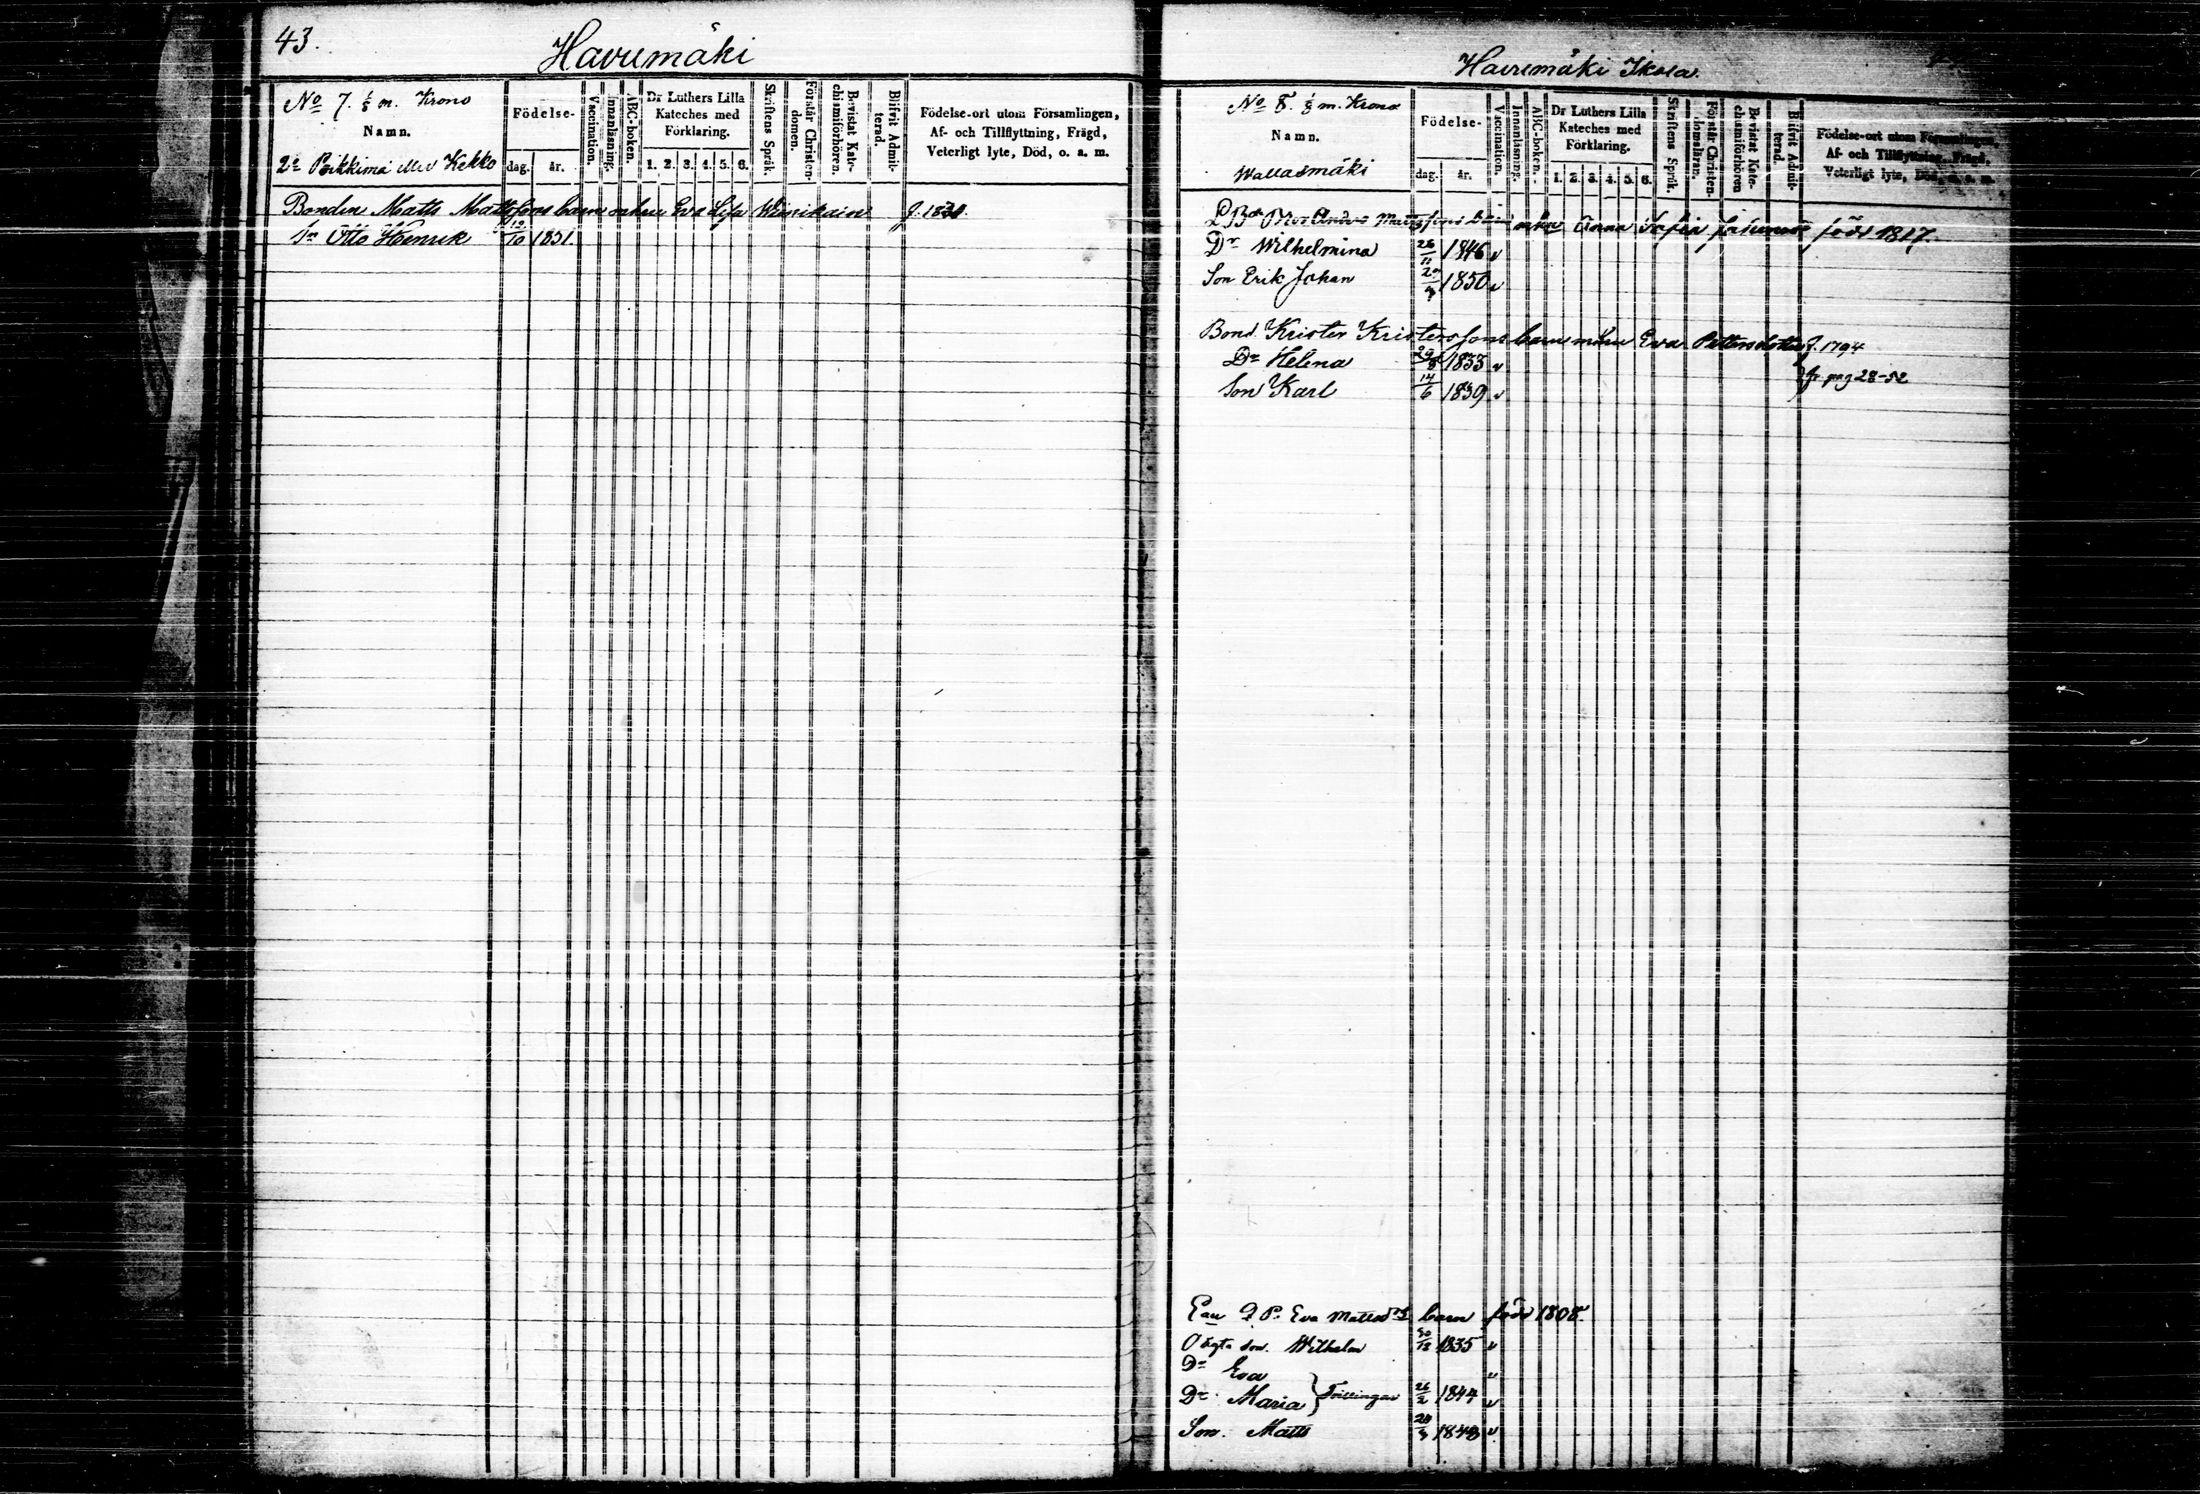 43.
Havumäki
No 7. 1/8 m. Krono
Namn.
2a Pöikkimä eller Kekko
Födelse-
dag. år.
Vaccination.
Innanläsning.
ABC-boken.
Dr Luthers Lilla
Kateches med
Förklaring.
1. 2. 3. 4. 5. 6.
Skriftens Språk.
Förstår Christen-
domen.
Bevistat Kate-
chismiförhören.
Blifvit Admit-
terad.
Födelse-ort utom Församlingen,
Af- och Tillflyttning, Frägd,
Veterligt lyte, Död, o. a. m.
Bonden Matts Mattssons barn enkan Eva Lisa Weinikain f.
Sn Otto Henrik 12/10 1851.
Havumäki Ikola.
No 8. 1/3 m. Krono
Namn.
Wallasmäki
Födelse-
dag. år.
Vaccination.
Innanläsning.
ABC-boken.
Dr Luthers Lilla
Kateches med
Förklaring.
1. 2. 3. 4. 5. 6.
Skriftens Språk.
Förstår Christen-
domsläran.
Bevistat Kate-
chismiförhören
Blifvit Admit-
terad.
Födelse-ort utom Församlingen,
Af- och Tillflyttning, Frägd,
Veterligt lyte, Död, o. a. m.
Mattssons barn Anna Sofia född 1817.
Dr Wilhelmina 26/11 1846 v
Son Erik Johan 1850 v
Bond. Krister Kristerssons barn Eva Pettersdotter f. 1794
Dr Helena 1833 v
fr pag 28-52
Son Karl 14/6 1839 v
Eva Mattsdr barn född 1808.
Oägta son. Wilhelm 1835 v
Dr Eva v
Dr Maria } Trillingar 26/2 1844 v
Son. Matts 1848 v